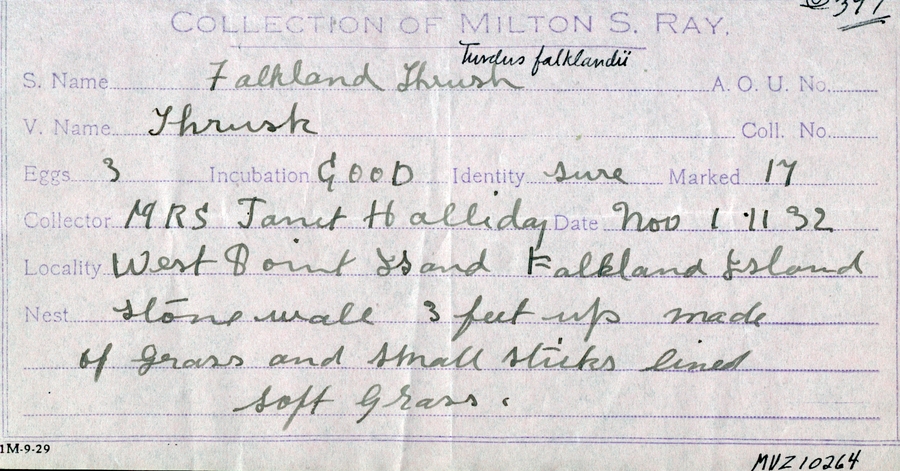 COLLECTION OF MILTON S. RAY.
Turdus falklandii
S. Name Falkland Thrush A. O. U. No.
V. Name Thrush Coll. No.
Eggs 3 Incubation GOOD Identity sure Marked 17
Collector MRS Janet Halliday Date Nov 1 11 32
Locality West Point Isand Falkland Island
Nest stone wall 3 feet up made
of grass and small sticks lined
soft Grass.
1M-9-29
MVZ10264